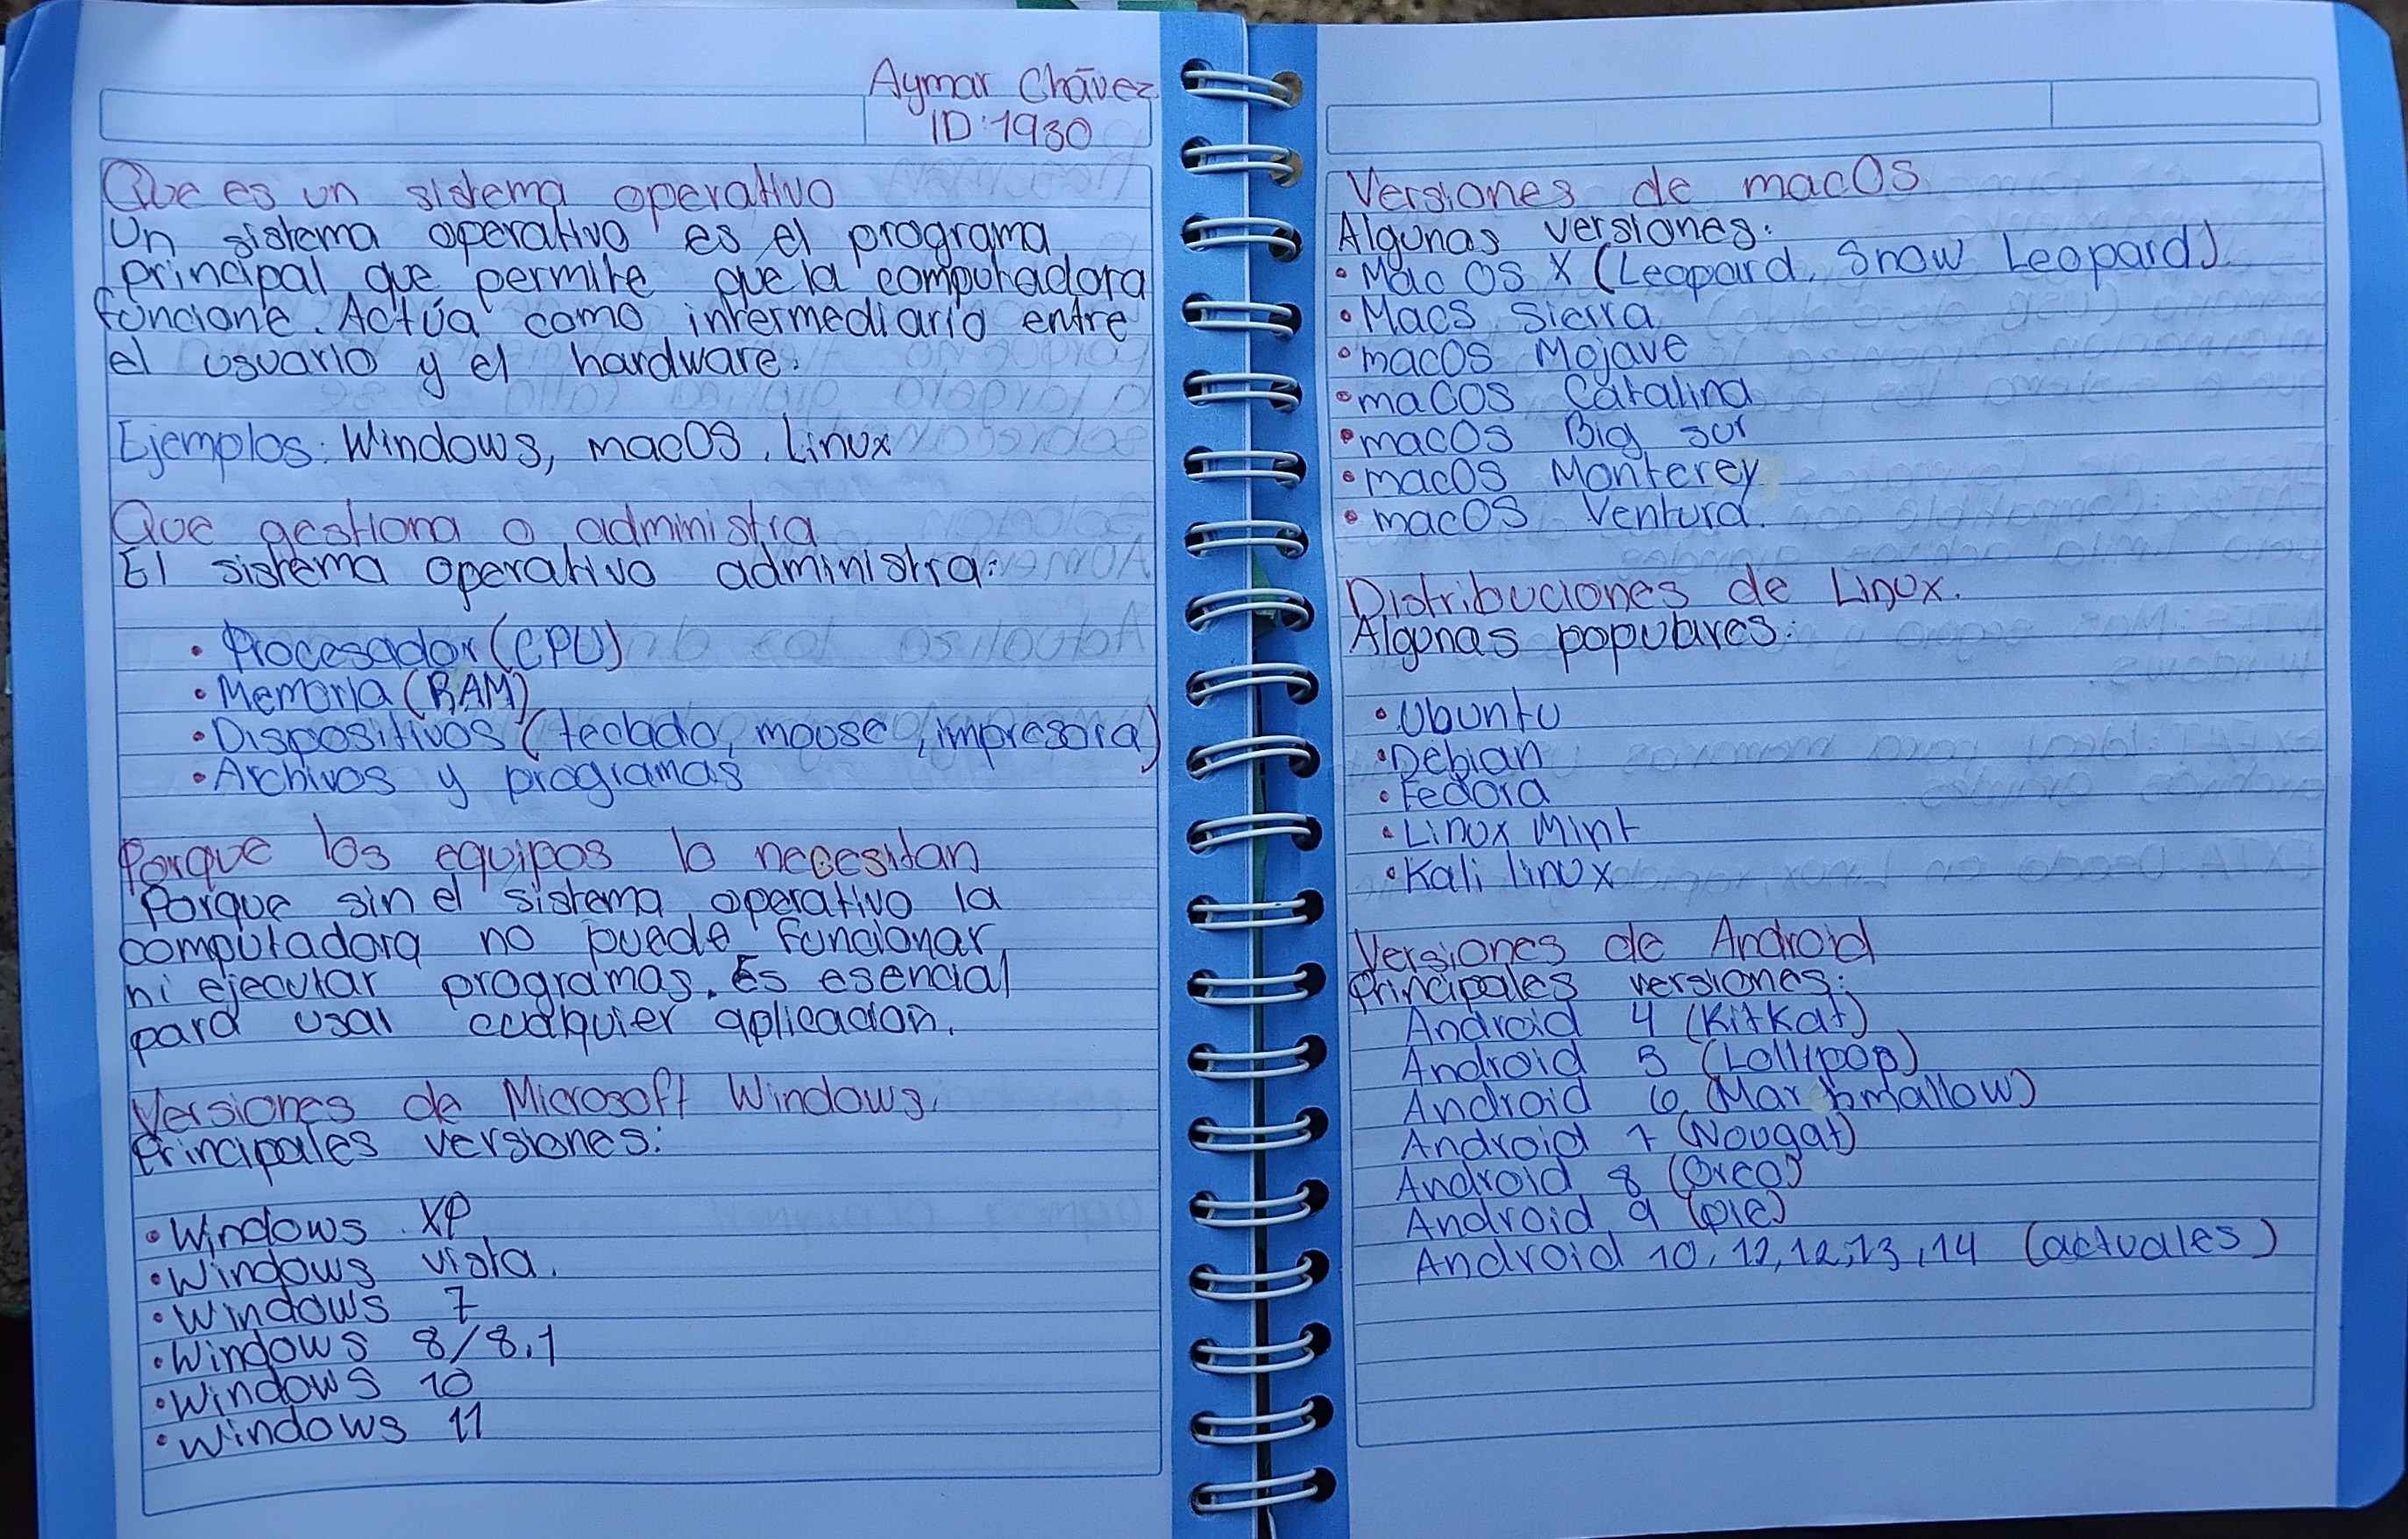 Aymar Chávez
ID:1930
Que es un sistema operativo
Un sistema operativo es el programa
principal que permite que la computadora
funcione. Actúa como intermediario entre
el usuario y el hardware.
Ejemplos: Windows, macOS, Linux
Que gestiona o administra
El sistema operativo administra:
• Procesador (CPU)
• Memoria (RAM)
• Dispositivos (teclado, mouse, impresora)
• Archivos y programas
Porque los equipos lo necesitan
Porque sin el sistema operativo la
computadora no puede funcionar
ni ejecutar programas. Es esencial
para usar cualquier aplicacion.
Versiones de Microsoft Windows.
Principales versiones:
• Windows XP
• Windows vista.
• Windows 7
• Windows 8/8.1
• Windows 10
• Windows 11
Versiones de macOS
Algunas versiones:
• Mac OS X (Leopard, Snow Leopard)
• Macs Sierra
• macOS Mojave
• macOS Catalina
• macOS Big sur
• macOS Monterey
• macOS Ventura.
Distribuciones de Linux.
Algunas populares:
• Ubuntu
• Debian
• Fedora
• Linux Mint
• Kali linux
Versiones de Android
Principales versiones:
Android 4 (KitKat)
Android 5 (Lollipop)
Android 6 (Marshmallow)
Android 7 (Nougat)
Android 8 (Oreo)
Android 9 (pie)
Android 10, 11, 12, 13, 14 (actuales)